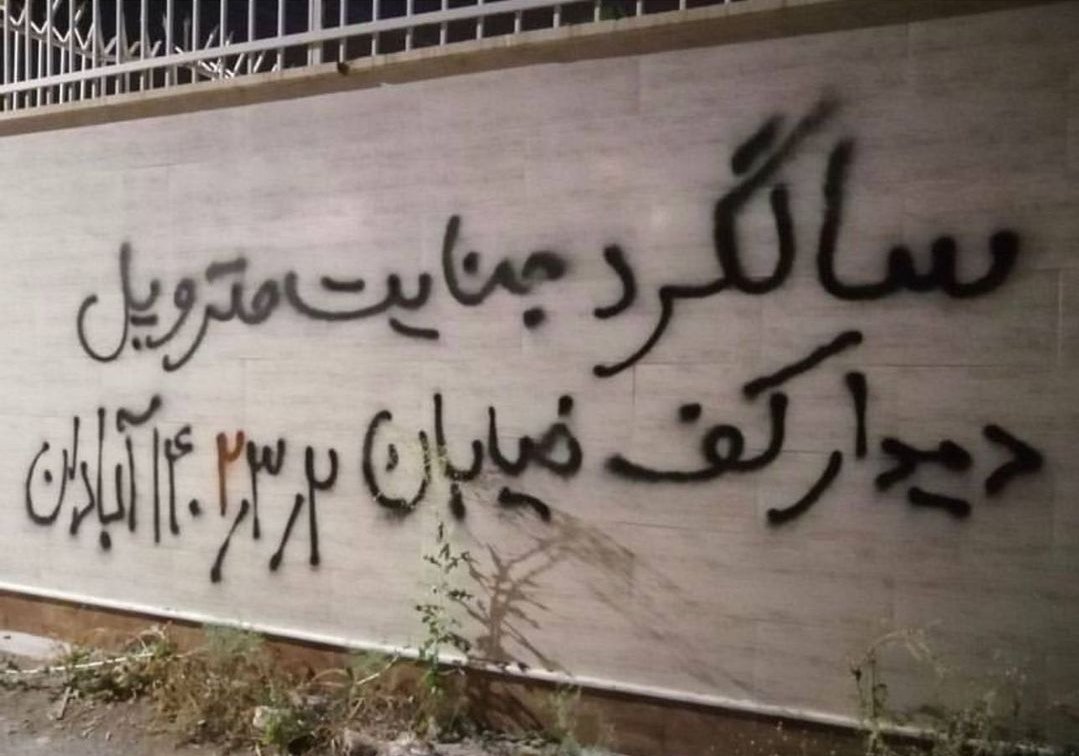 سالگرد جنایت متروپل
دیدار کف خیابان ۲/۳/۱۴۰۲ آبادان